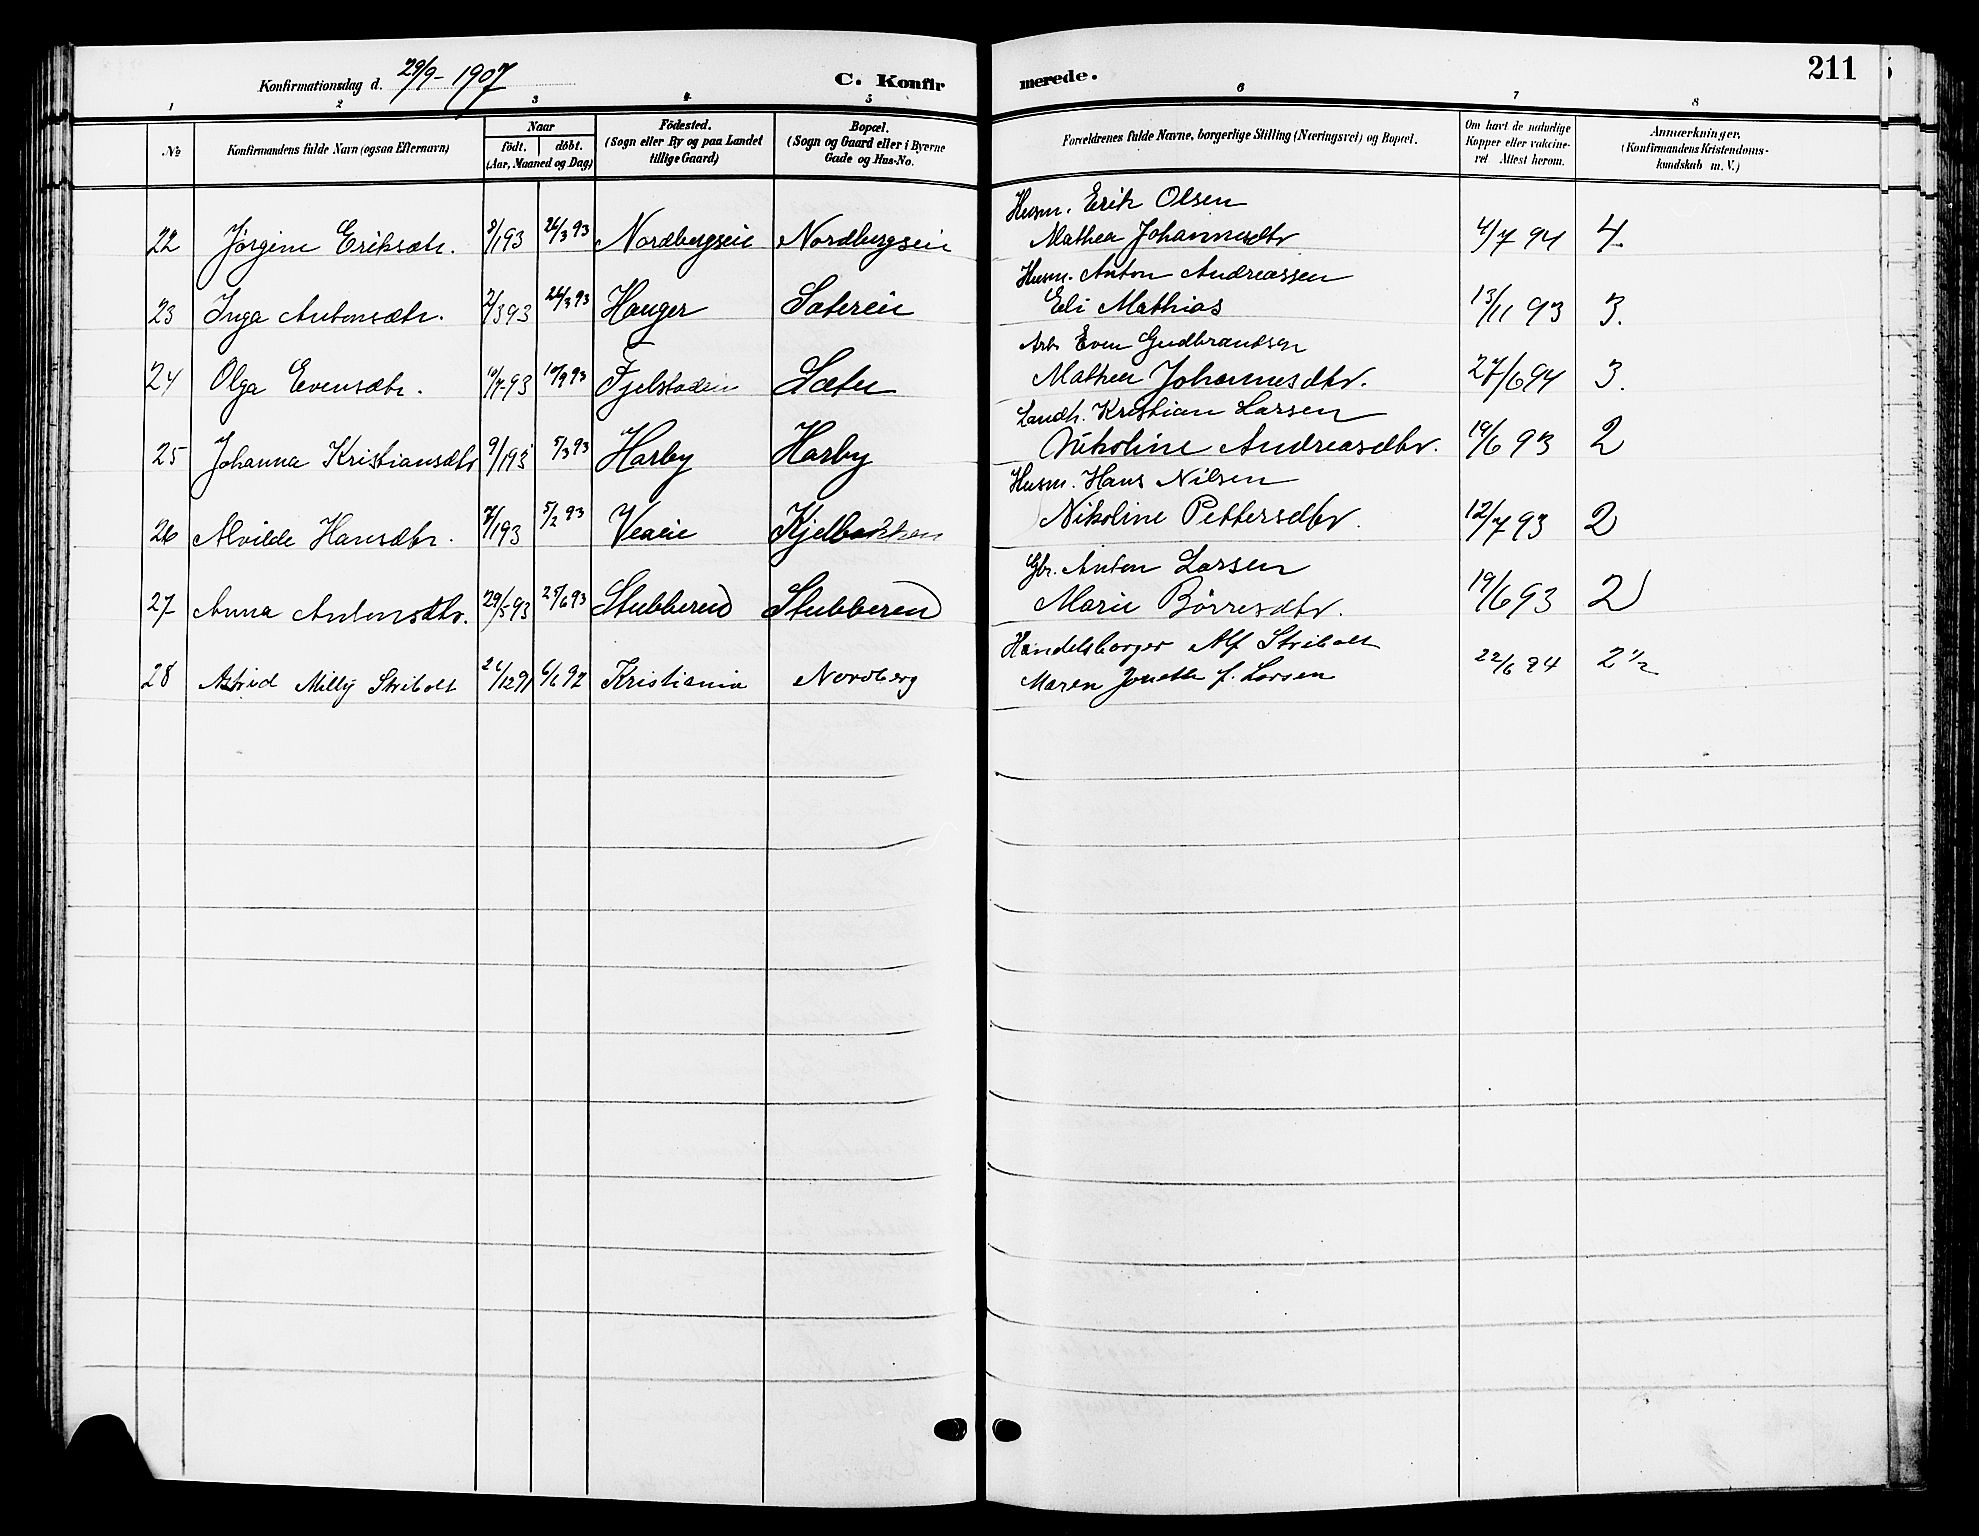 Konfirmationsdag d. 29/9-1907
C. Konfir
merede.
211
1 2 3 4 5 6 7 8
No
Konfirmandens fulde Navn (ogsaa Efternavn)
Naar
födt. döbt.
(Aar, Maaned og Dag)
Födested.
(Sogn eller By og paa Landet
tillige Gaard)
Bopæl.
(Sogn og Gaard eller i Byerne
Gade og Hus-No.
Forældrenes fulde Navne, borgerlige Stilling (Næringsvei) og Bopæl.
Om havt de naturlige
Kopper eller vakcine-
ret Attest herom.
Anmærkninger,
(Konfirmandens Kristendoms-
kundskab m. V.)
Husm. Erik Olsen
22 Jörgine Eriksdtr. 3/1 93 26/3 93 Nordbergseie Nordbergseie Mathea Johannesdtr 4/7 94 4.
Husm. Anton Andreassen
23 Inga Antonsdtr. 2/3 93 26/3 93 Hauger Sætereie Eli Mathias 13/11 93 3.
Arb. Even Gudbrandsen
24 Olga Evensdtr. 10/7-93 10/9 93 Fjelstadeie Sæter Mathea Johannesdtr. 27/6 94 3.
Landh. Kristian Larsen
25 Johanna Kristiansdtr 9/1 93 5/3 93 Harby Harby Nikoline Andreasdtr. 19/6 93 2
Husm. Hans Nilsen
26 Alvilde Hansdtr. 7/1 93 5/2 93 Veaeie Kjelbakken Nikoline Pettersdtr. 12/7 93 2
Gbr. Anton Larsen
27 Anna Antonsdtr. 29/5 93 25/6 93 Stubberud Stubberud Marie Börresdtr. 19/6 93 2
Handelsborger Alf Stribolt
28 Astrid Milly Stribolt 26/12 91 6/6 92 Kristiania Nordberg Maren Jonette f. Larsen 22/6 94 2 1/2